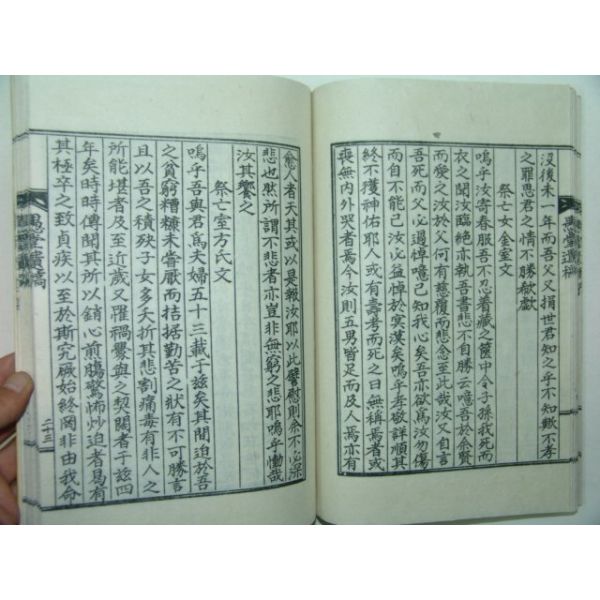 沒後未一年而吾父又捐世君知之乎不知歟不孝
之罪思君之情不勝歔欷
祭亡女金室文
嗚乎汝寄春服吾不忍着藏之篋中令子孫我死而
衣之聞汝臨絶亦執吾書悲不自勝云噫吾於余賢
而愛之汝於父何有慈覆而悲念至此我汝又自言
吾死而父必過悼噫已知我心矣吾亦欲爲汝勿傷
而自不能已汝必益悼於冥漠矣嗚乎孝敬詳順其
終不獲神佑耶人或有壽考而死之日無稱焉者或
喪無內外哭者焉今汝則五男皆足而及人焉亦有
愈人者天其或以是報汝耶以此譬慰則余不必深
悲也然所謂不悲者亦豈非無窮之悲耶嗚乎慟哉
汝其饗之
祭亡室方氏文
嗚乎吾與君爲夫婦五十三載于玆矣其間迫於吾
之貧窮糟糠未嘗厭而拮据勤苦之狀有不可勝言
且以吾之積殃子女多夭折其悲割痛毒有非人之
所能堪者及至近歲又罹禍釁與之契闊者于玆四
年矣時時傳聞其所以銷心煎膓驚怖炒迫者曷有
其極卒之致貞疾以至於斯究厥始終罔非由我命
遺稿
二十三